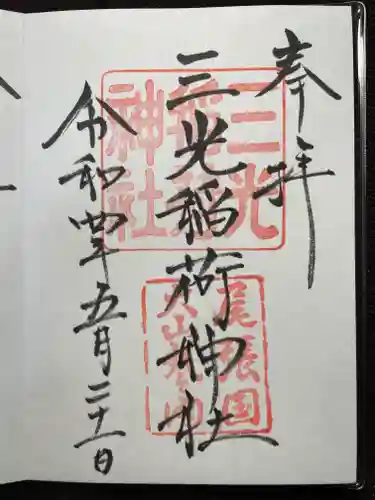 奉拝
三光稲荷神社
令和四年五月二十一日
三光
稲荷
神社
尾張国
犬山鎮守